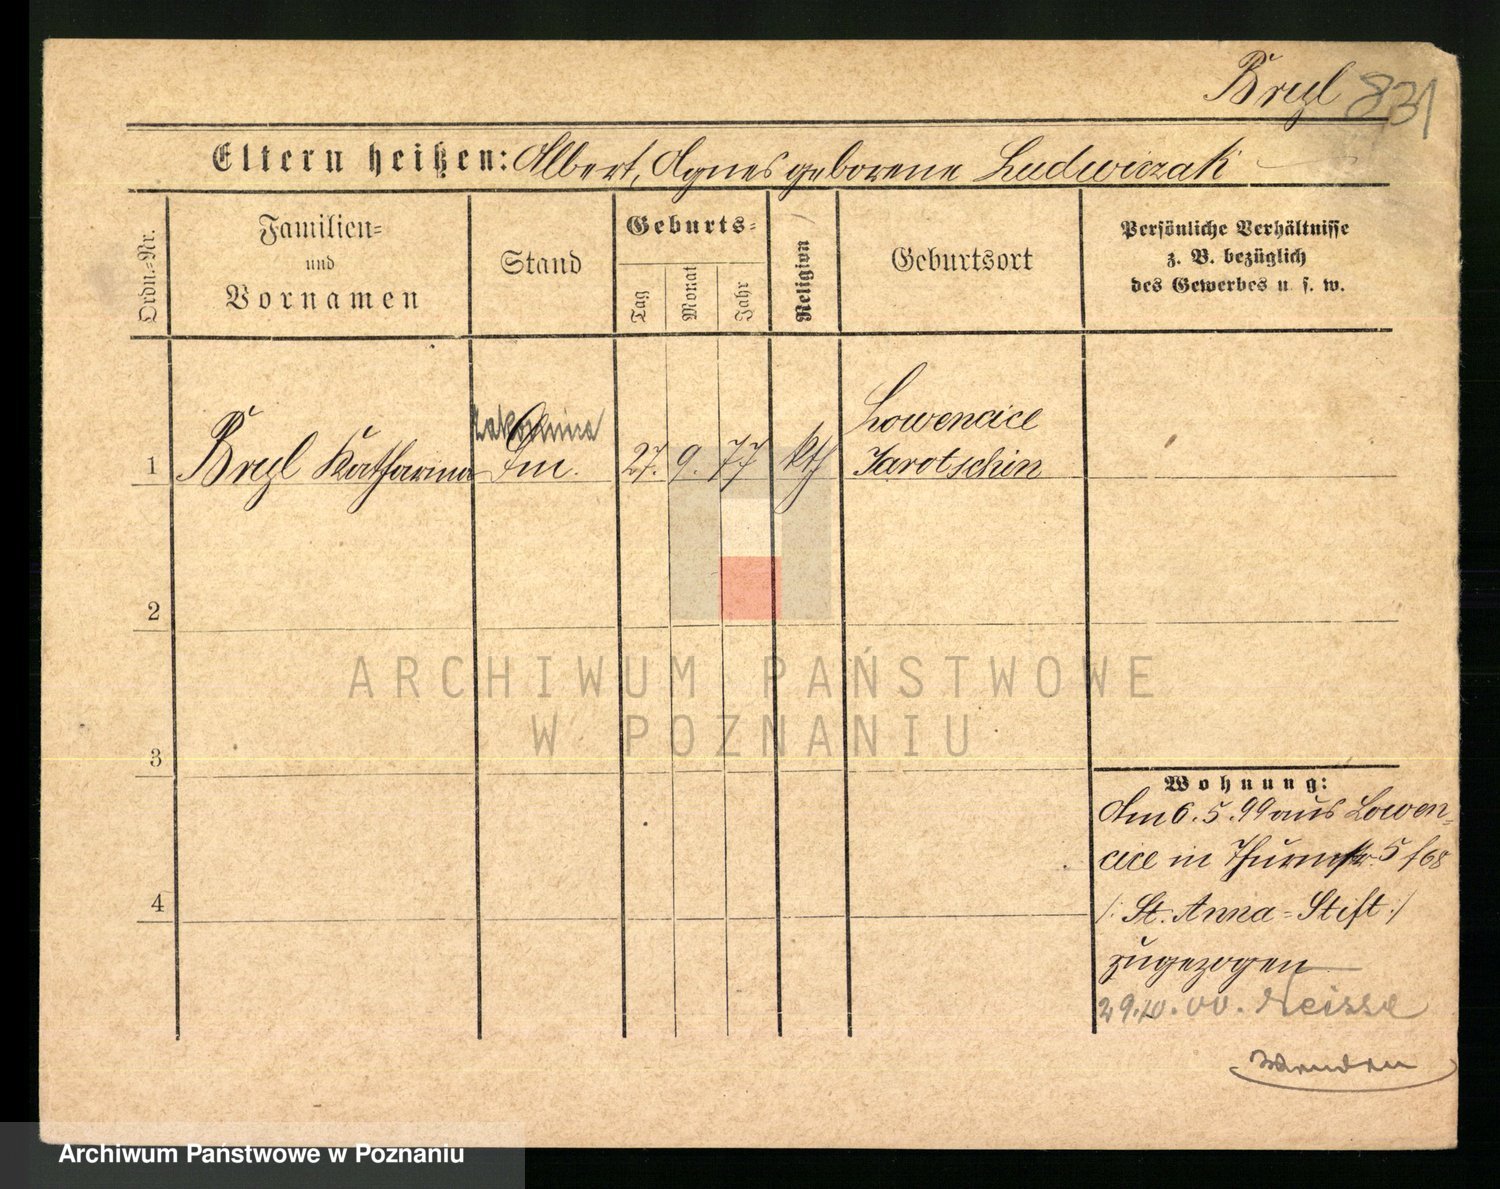 Bryl 831
Eltern heißen: Albert, Agnes geborene Ludwiczak
Ordn.-Nr.
Familien-
und
Vornamen
Stand
Geburts-
Tag
Monat
Jahr
Religion
Geburtsort
Persönliche Verhältnisse
z. B. bezüglich
des Gewerbes u. s. w.
Lowencice
1 Bryl Katharina 27. 9. 77 kth Jarotschin
2
ARCHIWUM PAŃSTWOWE
W POZNANIU
3
Wohnung:
Am 6. 5. 99 aus Lowen-
cice in Thurmstr. 5 f 68
/: St. Anna-Stift :/
4
zugezogen
29.10.00. Neisse
Wenden
Archiwum Państwowe w Poznaniu